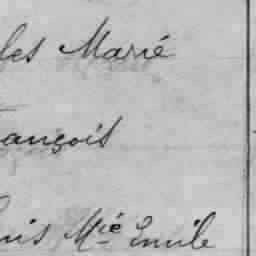 les Marié
ançois
uis Mié Emile